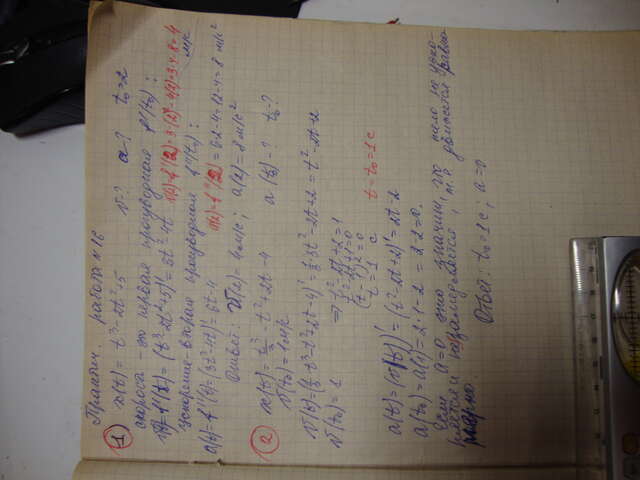 Практич. работа №16
① x(t) = t³-2t²+5 v-? a-? t₀=2
скорость - это первая производная f'(t₀):
v(t)=f'(t)=(t³-2t²+5)'=3t²-4t v(2)=f'(2)=3·(2)²-4(2)=3·4-8=4 м/с
Ускорение - вторая производная f''(t₀):
a(t)=f''(t)=(3t²-4t)'=6t-4 a(2)=f''(2)=6·2-4=12-4=8 м/с²
Ответ: v(2)=4м/с; a(2)=8 м/с²
② x(t)=t³/3-t²+2t-4 a(t₀)-? t₀-?
v(t₀)=1м/с
v(t)=(1/3·t³-t²+2t-4)'=1/3·3t²-2t+2=t²-2t+2
v(t₀)=1 ⇒ t²-2t+2=1
t²-2t+1=0
(t-1)²=0
t=1 с t=t₀=1с
a(t)=(v(t))'=(t²-2t+2)'=2t-2
a(t₀)=a(1)=2·1-2=2-2=0.
Если a=0, это значит, что тело не уско-
ряется и не замедляется, т.е. движется равно-
мерно.
Ответ: t₀=1с; a=0